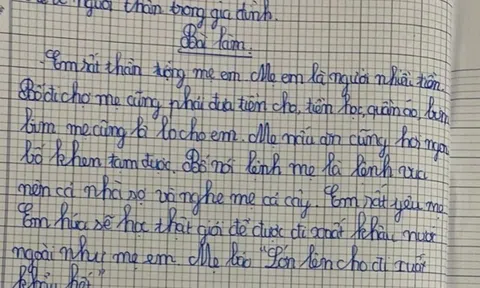 người thân trong gia đình.
Bài làm.
Em rất thân tượng mẹ em. Mẹ em là người nhiều tiền.
Bố đi chợ mẹ cũng phải đưa tiền cho, tiền học, quần áo, bim
bim mẹ cũng là lo cho em. Mẹ nấu ăn cũng hơi ngon
bố khen tạm được. Bố nói lệnh mẹ là lệnh vua
nên cả nhà sợ và nghe mẹ cả cây. Em rất yêu mẹ
Em hứa sẽ học thật giỏi để được đi xuất khẩu nước
ngoài như mẹ em. Mẹ bảo "Lớn lên cho đi xuất
khẩu hết"